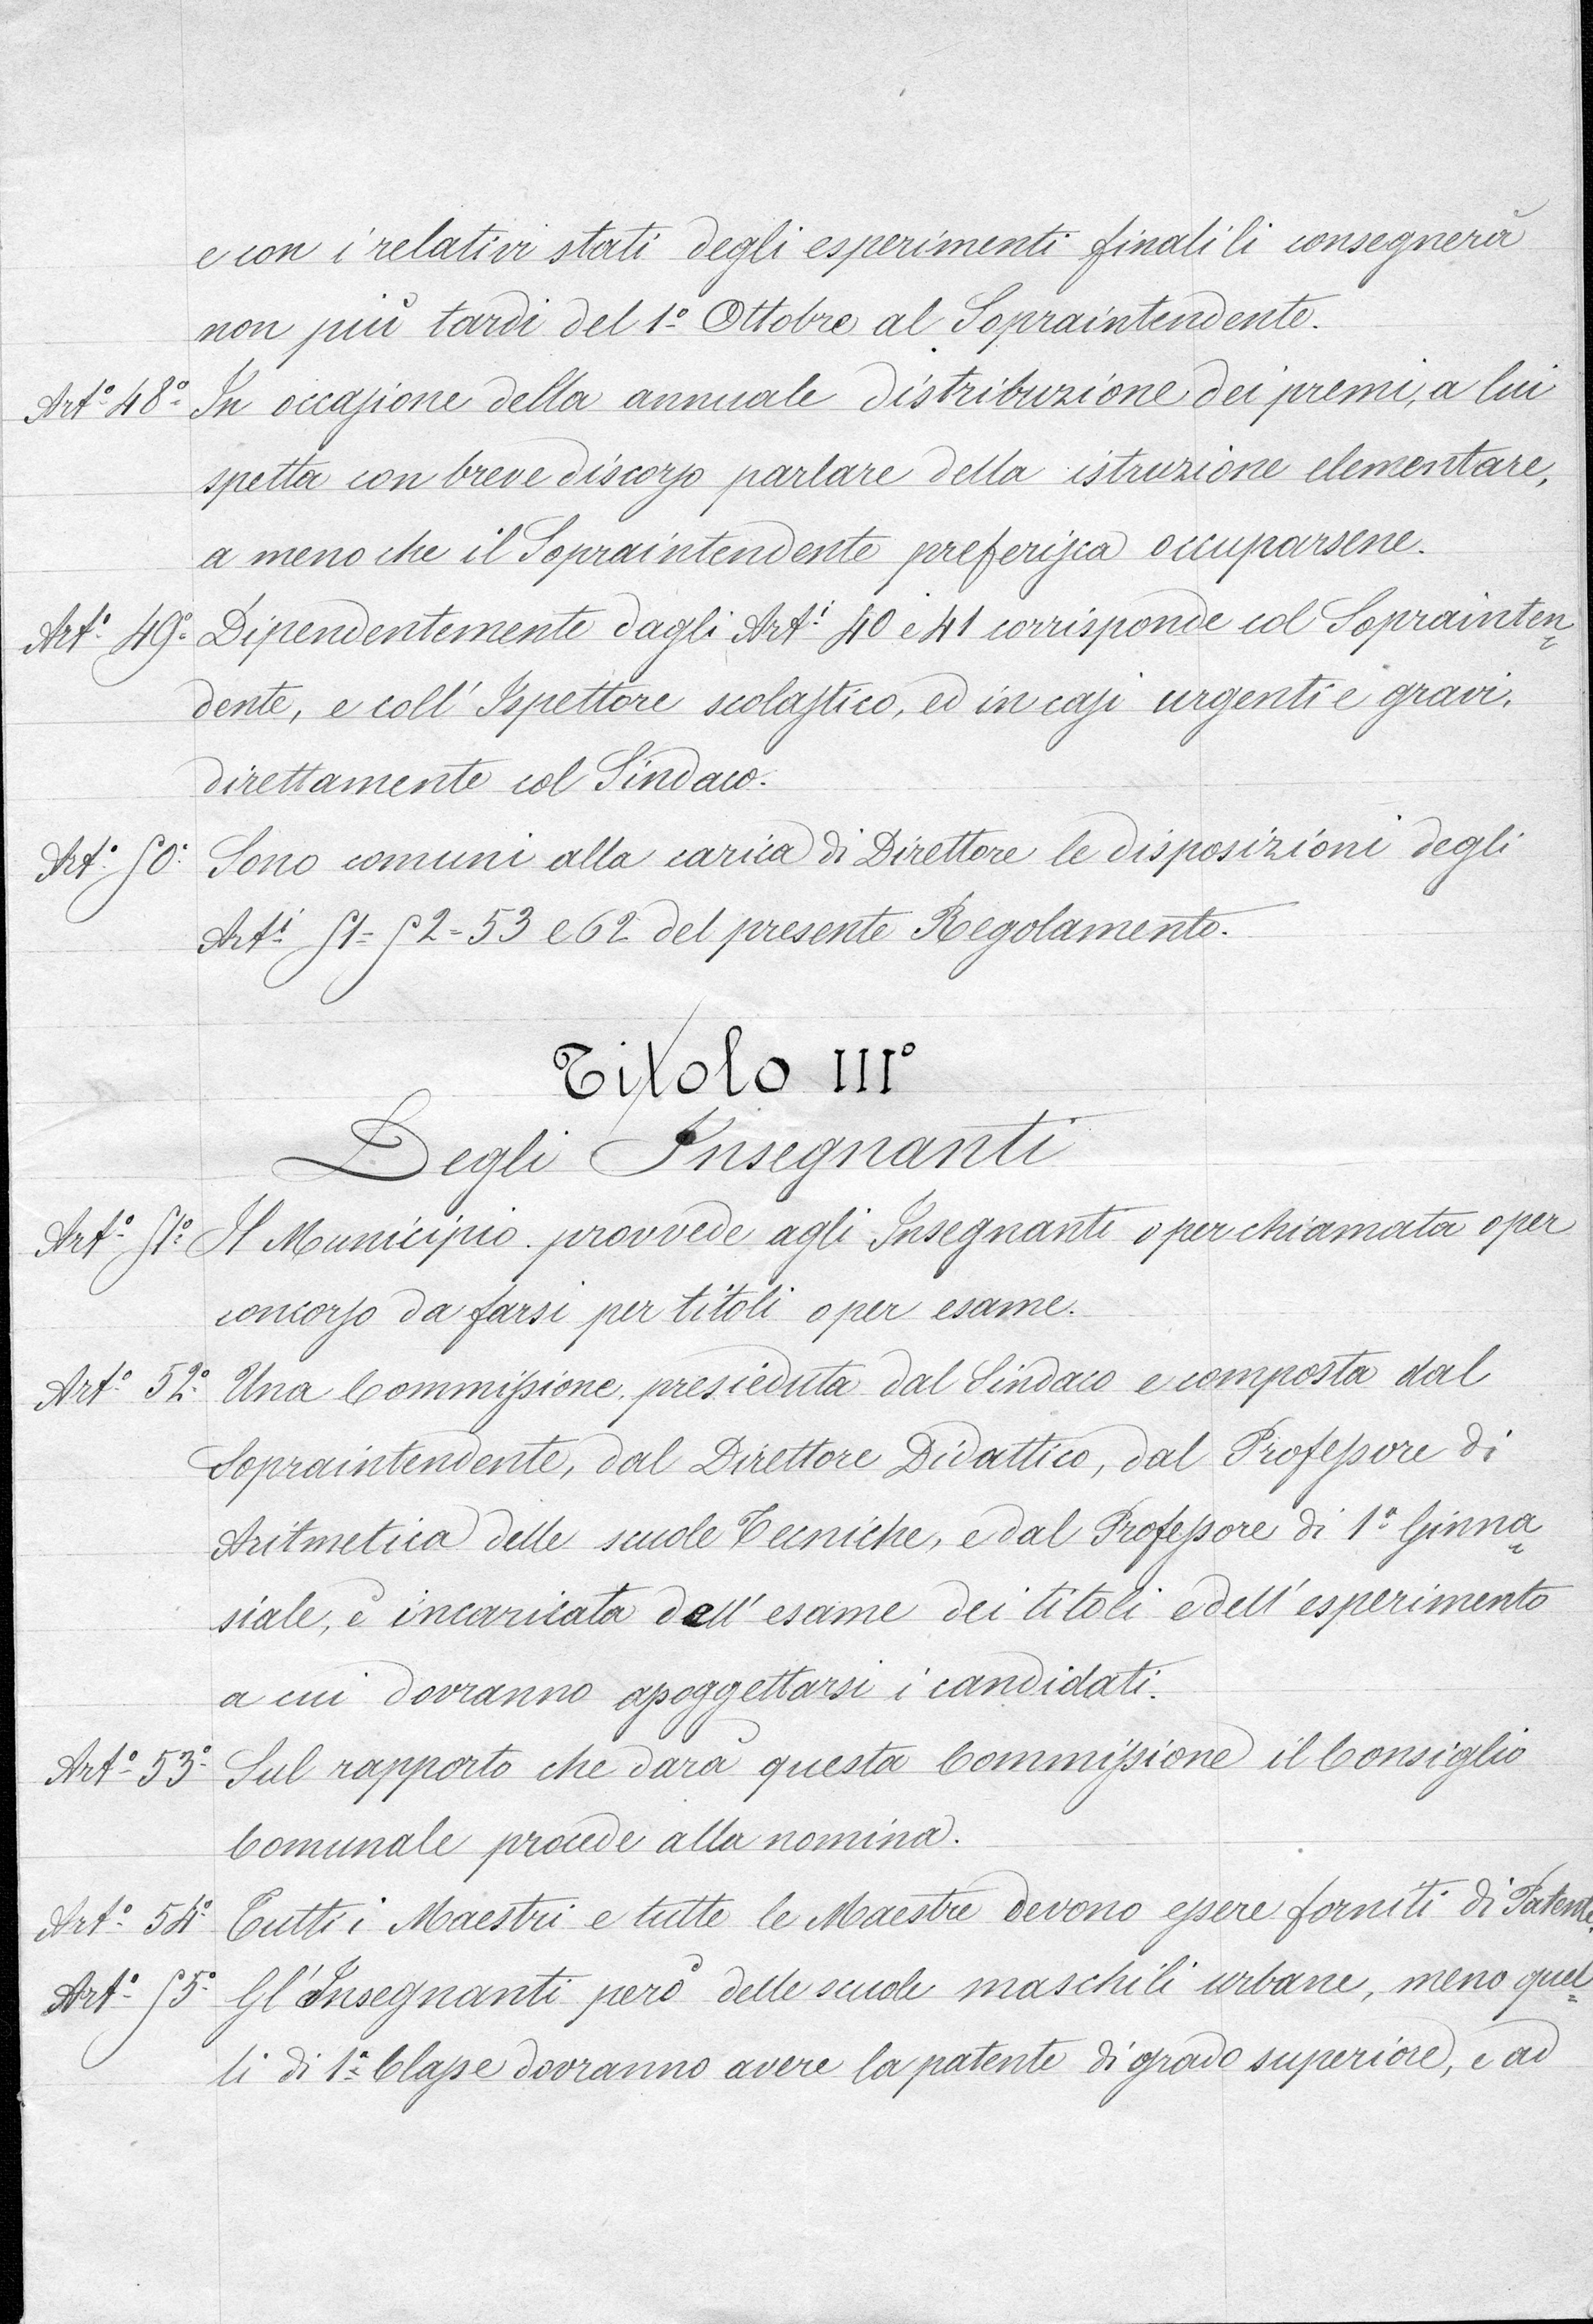 e con i relativi stati degli esperimenti finali li consegnerà
non più tardi del 1º Ottobre al Sopraintendente.
Artº 48º In occasione della annuale distribuzione dei premi, a lui
spetta con breve discorso parlare della istruzione elementare,
a meno che il Sopraintendente preferisca occuparsene.
Artº 49º Dipendentemente dagli Artⁱ 40 e 41 corrisponde col Soprainten=
dente, e coll' Ispettore scolastico, ed in casi urgenti e gravi,
direttamente col Sindaco.
Artº 50º Sono comuni alla carica di Direttore le disposizioni degli
Artⁱ 51=52=53 e 62 del presente Regolamento.
Titolo IIIº
Degli Insegnanti
Artº 51º Il Municipio provvede agli Insegnanti o per chiamata o per
concorso da farsi per titoli o per esame.
Artº 52º Una Commissione presieduta dal Sindaco e composta dal
Sopraintendente, dal Direttore Didattico, dal Professore di
Aritmetica delle scuole Tecniche, e dal Professore di 1ª Ginna=
siale, è incaricata dell' esame dei titoli e dell' esperimento
a cui dovranno assoggettarsi i candidati.
Artº 53º Sul rapporto che darà questa Commissione il Consiglio
Comunale procede alla nomina.
Artº 54º Tutti i Maestri e tutte le Maestre devono essere forniti di Patente.
Artº 55º Gl' Insegnanti però delle scuole maschili urbane, meno quel=
li di 1ª Classe dovranno avere la patente di grado superiore, e ad